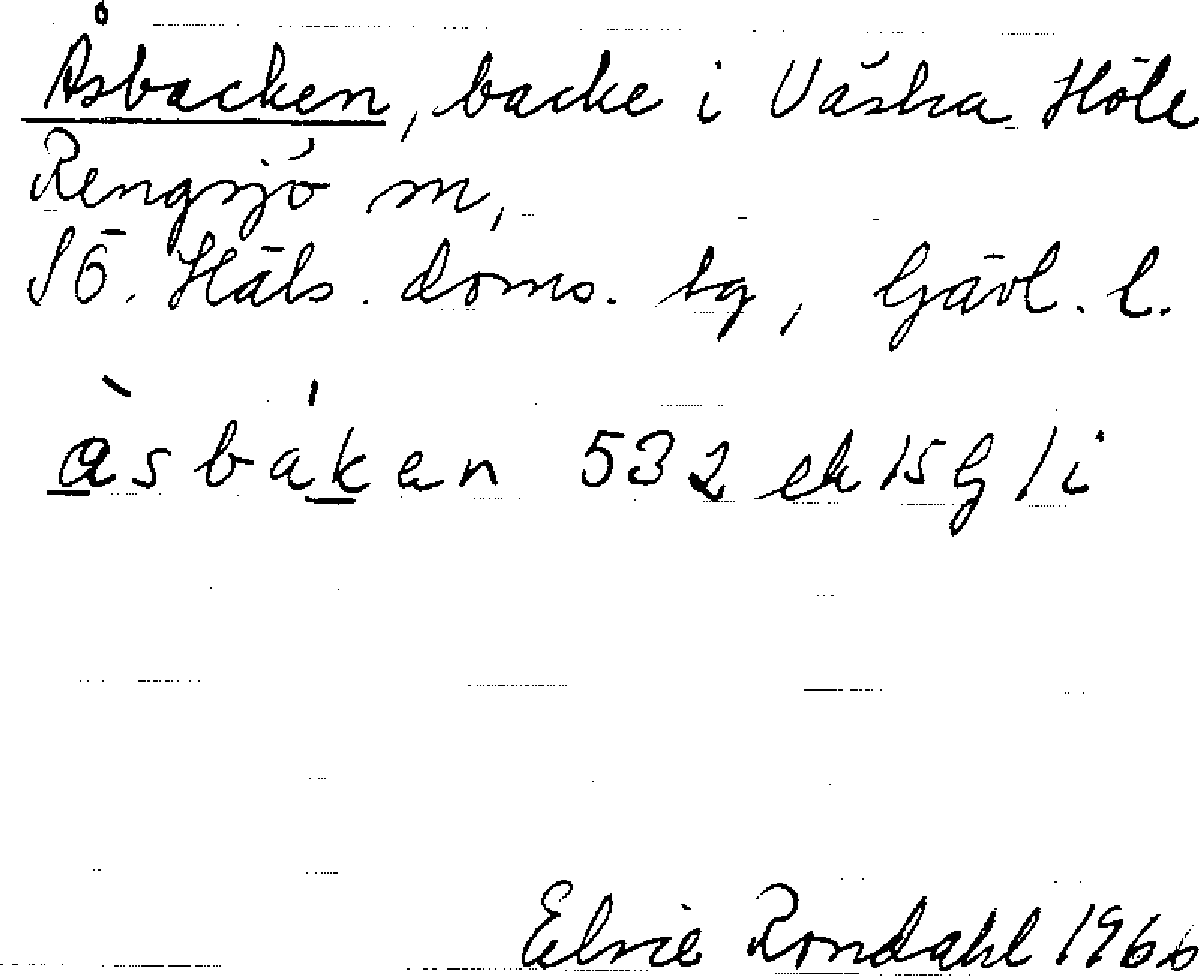 Åsbacken, backe i Västra Höle
Rengsjö sn,
SÖ. Häls. doms. tg, Gävl. l.
àsbákan 532 ek 15G 1 i
Elsie Rondahl 1966